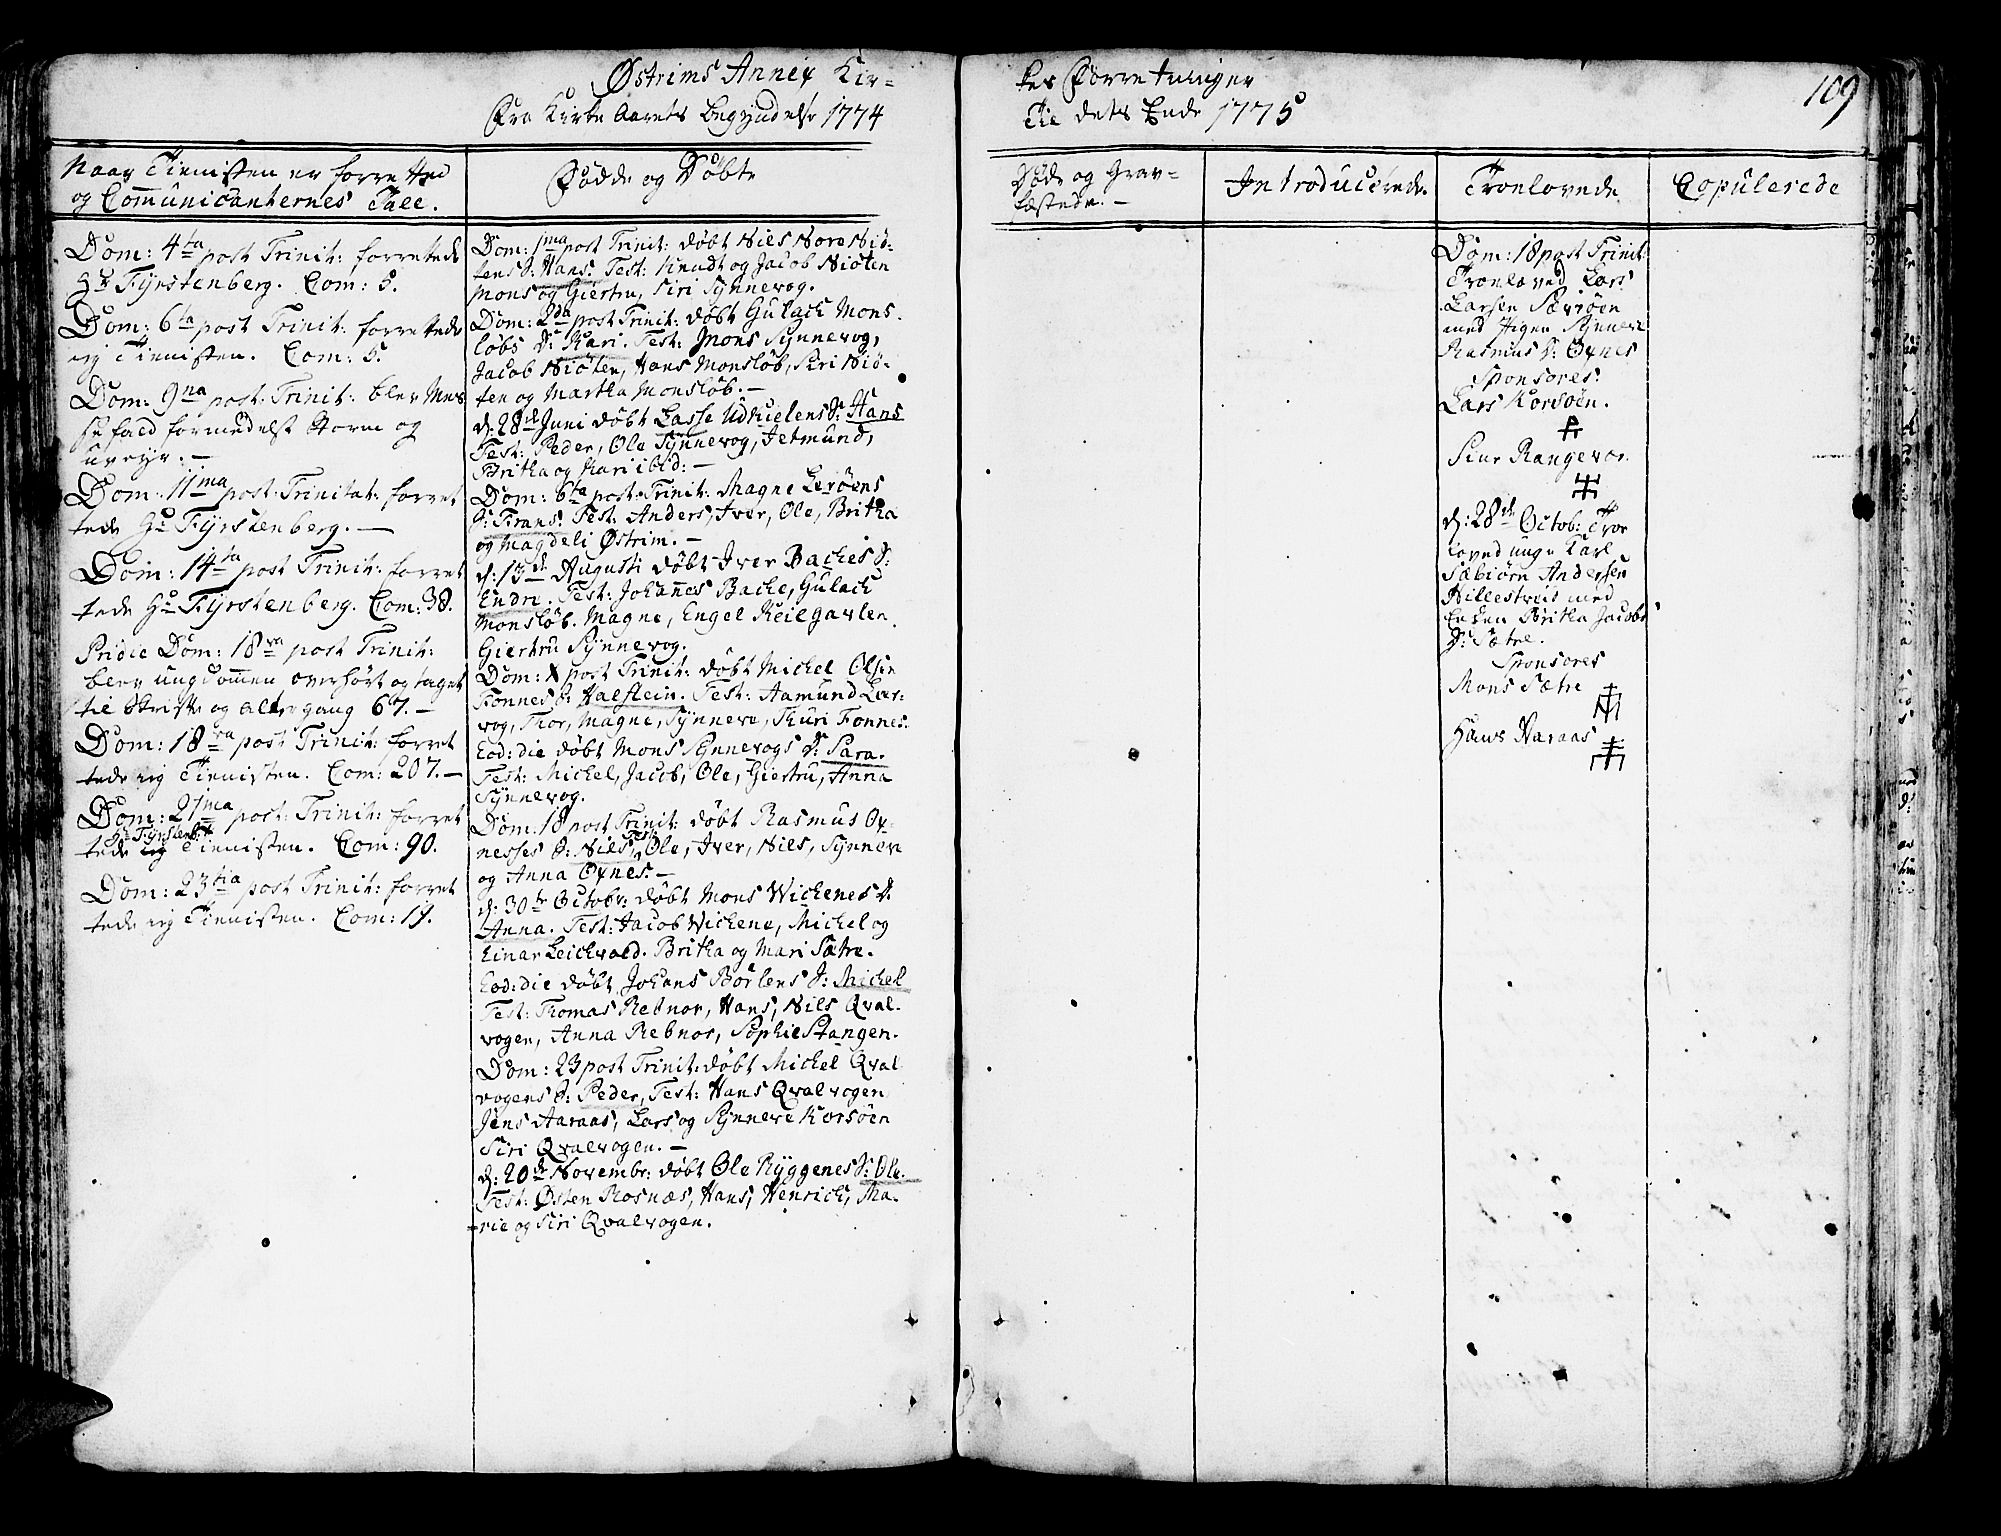 Østrims Annex Kir-
Fra Kirke Aarets begyndelse 1774
kes Forretninger
Til dets Ende 1775
109
Naar Tienisten er forretted
og Com̄unicanternes Tall.
Fødde og Døbte
Døde og Grav-
fæstede. -
Introducerede.
Troelovede.
Copulerede
Dom: 4ta post Trinit: forrettede
Hr Fyrstenberg. Com: 5.
Dom: 6ta post Trinit: forrettede
ieg Tienisten. Com: 5.
Dom: 9na post: Trinit: blev Mes
se fald formedelst Storm og
uveyr. -
Dom: 11ma post: Trinitat: forret
tede Hr Fyrstenberg. -
Dom: 14ta post Trinit: forret
tede Hr Fyrstenberg. Com: 38.
Pridie Dom: 18va post Trinit:
blev ungdom̄en overhørt og taget
til Skrifte og altergang 67. -
Dom: 18va post Trinit: forret
tede ieg Tienisten. Com: 207. -
Dom: 21ma post: Trinit: forret
Hr Fyrstenb:
tede ieg Tienisten. Com: 90.
Dom: 23tia post Trinit: forret
tede ieg Tienisten. Com: 19.
Dom: 1ma post Trinit: døbt Niels Nore Niø-
tens S: Hans. Test: Knudt og Jacob Niøten
Mons og Giertru, Siri Synnevog.
Dom: 2da post Trinit: døbt Gulach Mons
løbs D: Kari. Test: Mons Synnevog,
Jacob Niøten, Hans Monsløb, Siri Niø-
ten og Martha Monsløb. -
d: 28de Juni døbt Lasse Udnielens S: Hans
Test: Peder, Ole Synnevog, Jetmund,
Britha og Kari ibid: -
Dom: 6ta post: Trinit: Magne Lerøens
S: Frans. Test: Anders, Iver, Ole, Britha
og Magdeli Østrim. -
d: 13de Augusti døbt Iver Baches S:
Endre. Test: Johan̄es Bache, Gulach
Monsløb. Magne, Engel Keilgavlen.
Giertru Synnevog.
Dom: X post Trinit: døbt Michel Olsen
Fonnes S: Halstein. Test: Aamund Ler-
vog, Thor, Magne, Synneve, Thuri Fonnes.
Eod: die døbt Mons Synnevogs D: Sara.
Test: Michel, Jacob, Ole, Giertru, Anna
Synnevog.
Dom: 18 post Trinit: døbt Rasmus Ox-
nesses S: Niels, Test: Ole, Iver, Niels, Synnev
og Anna Oxnes. -
d: 30te Octobr: døbt Mons Wichenes D.
Anna. Test: Jacob Wichene, Michel og
Einar Leichvold. Britha og Mari Sætre.
Eod: die døbt Johans Børlens S: Michel
Test: Thomas Rebnor, Hans, Nils Qval-
vogen, Anna Rebnor, Sophie Stangen.
Dom: 23 post Trinit: døbt Michel Qval
vogens S: Peder, Test: Hans Qvalvogen
Jens Aaraas, Lars og Synneve Korsøen
Siri Qvalvogen. -
d: 20de Novembr: døbt Ole Ryggenes S: Ole.
Test: Østen Rosnæs, Hans, Henrich, Ma-
rie og Siri Qvalvogen.
Dom: 18 post Trinit:
Troeloved Lars
Larsen Sævrøen
med Pigen Synneve
Rasmus D: Oxnes
Sponsores:
Lars Korsøen.
Siur Rangevor
d: 28de Octob: Troe
loved unge Karl
Sæbiørn Andersen
Hillestveit med
Enken Britha Jacobs
D: Sætre.
Sponsores
Mons Sætre
Hans Aaraas